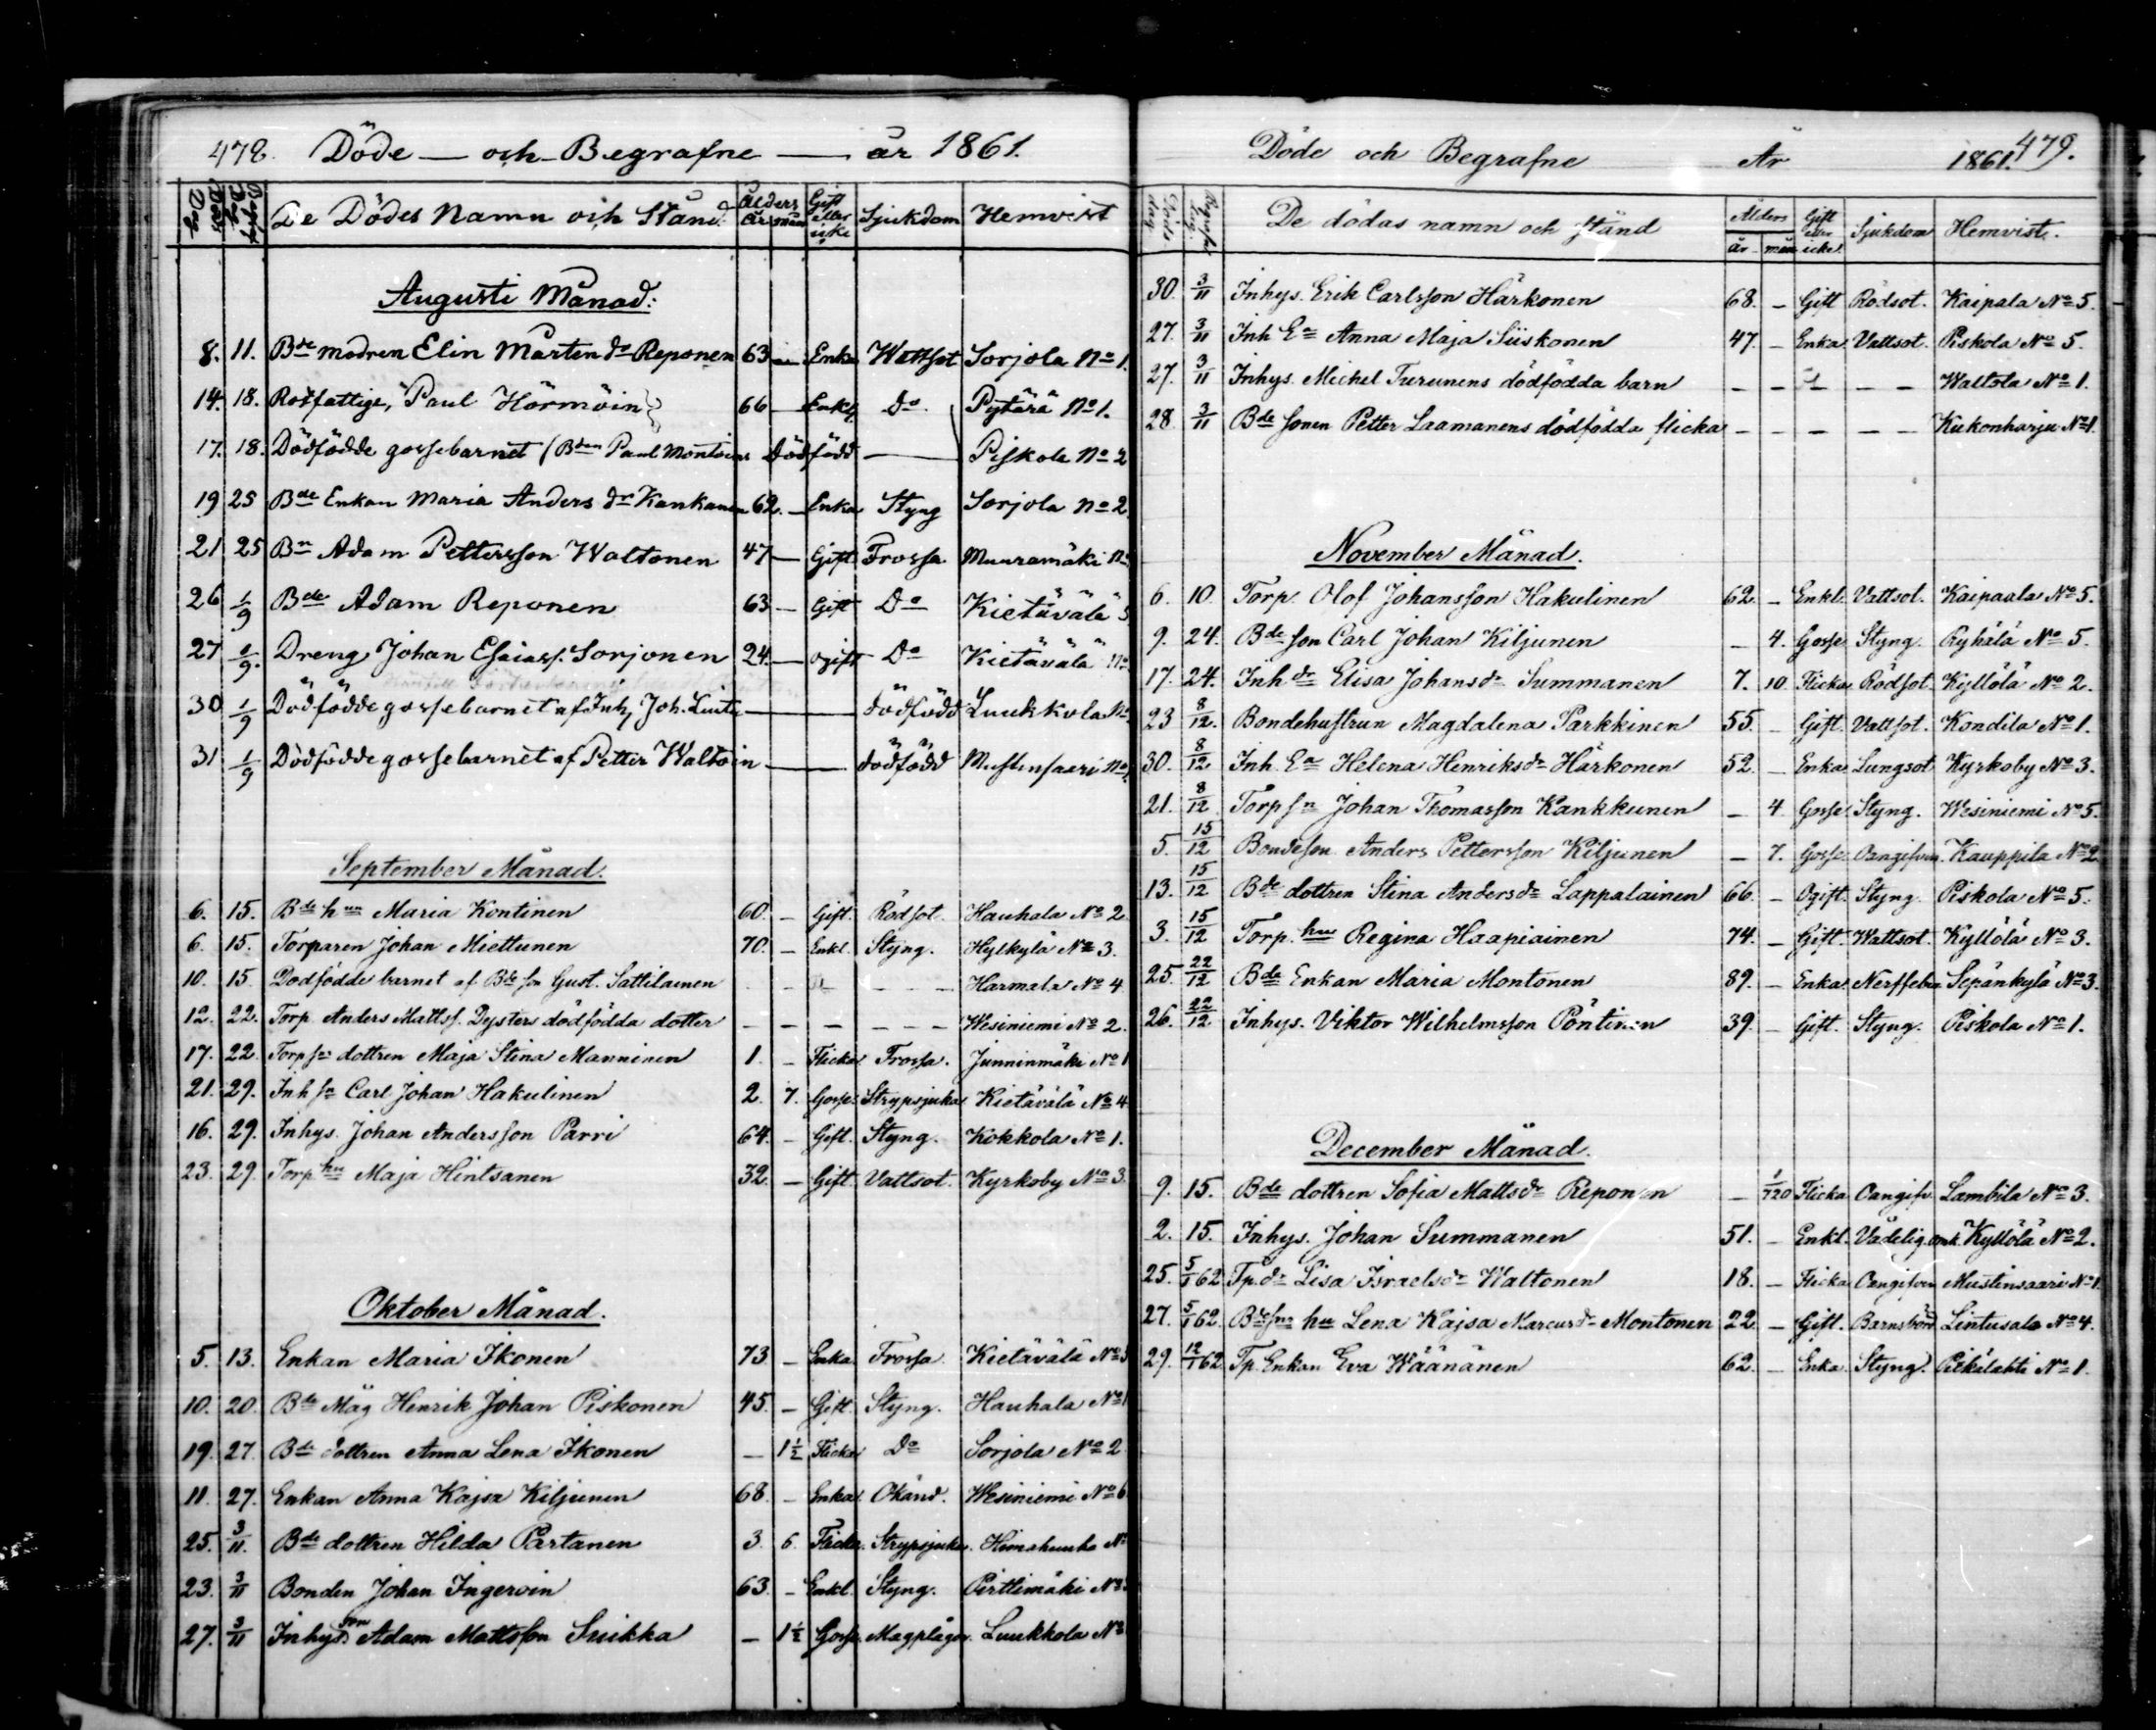 478. Döde — och Begrafne — år 1861.
Döds Dag Begrafn. Dag De Dödes Namn och Stånd. Ålders år mån Gift eller icke Sjukdom Hemvist
Augusti Månad:
8. 11. Bde modren Elin Mårtensdr Reponen 63 — Enka Wattsot Sorjola No 1.
14. 18. Rotfattige, Paul Hörmöin 66 — Enkl Do Pytärä No 1.
17. 18. Dödfödde gossebarnet (Bden Paul Montoins Dödfödd — Piskola No 2
19 25 Bde Enkan Maria Anders dr Kankanen 62. — Enka Styng Sorjola No 2
21 25 Bn Adam Pettersson Waltonen 47 — Gift Frossa Muuramäki No
26 1/9 Bde Adam Reponen 63 — Gift Do Kietävälä 5
27 1/9. Dreng Johan Esaiass. Sorjonen 24. — ogift Do Kietävälä No
30 1/9 Dödfödde gossebarnet af Inh, Joh. — dödfödd Luukkola No
31 1/9 Dödfödde gossebarnet af Petter Waltoin — dödfödd Mustinsaari No
September Månad.
6. 15. Bde hun Maria Kontinen 60. - Gift. Rödsot. Hauhala No 2.
6. 15. Torparen Johan Miettunen 70. - Enkl. Styng. Hylkylä No 3.
10. 15. Dödfödde barnet af Bde son Gust. Sattilainen - - - - - Harmala No 4
12. 22. Torp. Anders Mattss. Dysters dödfödda dotter - - - - - - Wesiniemi No 2.
17. 22. Torp sn dottren Maja Stina Manninen 1. - Flicka Frossa. Junninmäki No 1
21. 29. Inh sn Carl Johan Hakulinen 2. 7. Gosse Strypsjuka Kietävälä No 4
16. 29. Inhys. Johan Andersson Parri 64. - Gift. Styng. Kokkola No 1.
23. 29. Torp hu Maja Hintsanen 32. - Gift Vattsot. Kyrkoby No 3.
Oktober Månad.
5. 13. Enkan Maria Ikonen 73. - Enka Frossa. Kietävälä No 5
10. 20. Bde Måg Henrik Johan Piskonen 45. - Gift. Styng. Hauhala No 1
19. 27. Bde dottren Anna Lena Ikonen — 1½ Flicka Do Sorjola No 2
11. 27. Enkan Anna Kajsa Kiljunen 68. - Enka Okänd. Wesiniemi No 6
25. 3/11. Bde dottren Hilda Partanen 3. 6. Flicka. Strypsjuka. No
23. 3/11 Bonden Johan Ingeroin 63. - Enkl. Styng. Pirttimäki No 3
27. 3/11 Inhys son Adam Mattsson Suikka — 1½ Gosse. Magplågor. Luukkola No
Döde och Begrafne År 1861. 479.
Döds dag Begrafn. dag. De dödas namn och stånd Ålders år mån Gift eller icke Sjukdom Hemvist.
30. 3/11 Inhys. Erik Carlsson Härkonen 68. - Gift Rödsot. Kaipala No 5.
27. 3/11 Inh Ea Anna Maja Siiskonen 47. - Enka Vattsot. Piskola No 5.
27. 3/11 Inhys. Michel Turunens dödfödda barn - - - - Waltola No 1.
28. 3/11 Bde sonen Petter Laamanens dödfödda flicka - - - - - Kukonharju No 1.
November Månad.
6. 10. Torp. Olof Johansson Hakulinen 62. - Enkl. Vattsot. Kaipaala No 5.
9. 24. Bde son Carl Johan Kiljunen — 4. Gosse Styng. Ryhälä No 5.
17. 24. Inh dr Elisa Johansdr Summanen 7. 10 Flicka Rödsot. Kyllölä No 2.
23 8/12. Bondehustrun Magdalena Parkkinen 55. - Gift. Vattsot. Kondila No 1.
30. 8/12 Inh. Ea Helena Henriksdr Härkonen 52. - Enka Lungsot Kyrkoby No 3.
21. 8/12 Torp sn Johan Thomasson Kankkunen — 4 Gosse Styng. Wesiniemi No 5.
5. 15/12 Bondeson Anders Pettersson Kiljunen — 7. Gosse Oangifven. Kauppila No 2
13. 15/12 Bde dottren Stina Andersdr Lappalainen 66. - Ogift. Styng. Piskola No 5.
3. 15/12 Torp. hu Regina Haapiainen 74. - Gift. Wattsot. Kyllölä No 3.
25. 22/12 Bde Enkan Maria Montonen 89. - Enka. Nerffeber Sepänkylä No 3.
26. 22/12 Inhys. Viktor Wilhelmsson Pöntinen 39. - Gift. Styng. Piskola No 1.
December Månad.
9. 15. Bde dottren Sofia Mattsdr Reponen — 1/720 Flicka Oangifv. Lambila No 3.
2. 15. Inhys. Johan Summanen 51. - Enkl. Vådelig. Kyllölä No 2.
25. 5/1 62 Tp. dr Lisa Israelsdr Waltonen 18. - Flicka Oangifven Mustinsaari No 1.
27. 5/1 62. Bde sns hu Lena Kajsa Marcusdr Montonen 22. - Gift. Barnsbörd Lintusalo No 4.
29. 12/1 62 Tp. Enkan Eva Wäänänen 62. - Enka Styng. No 1.